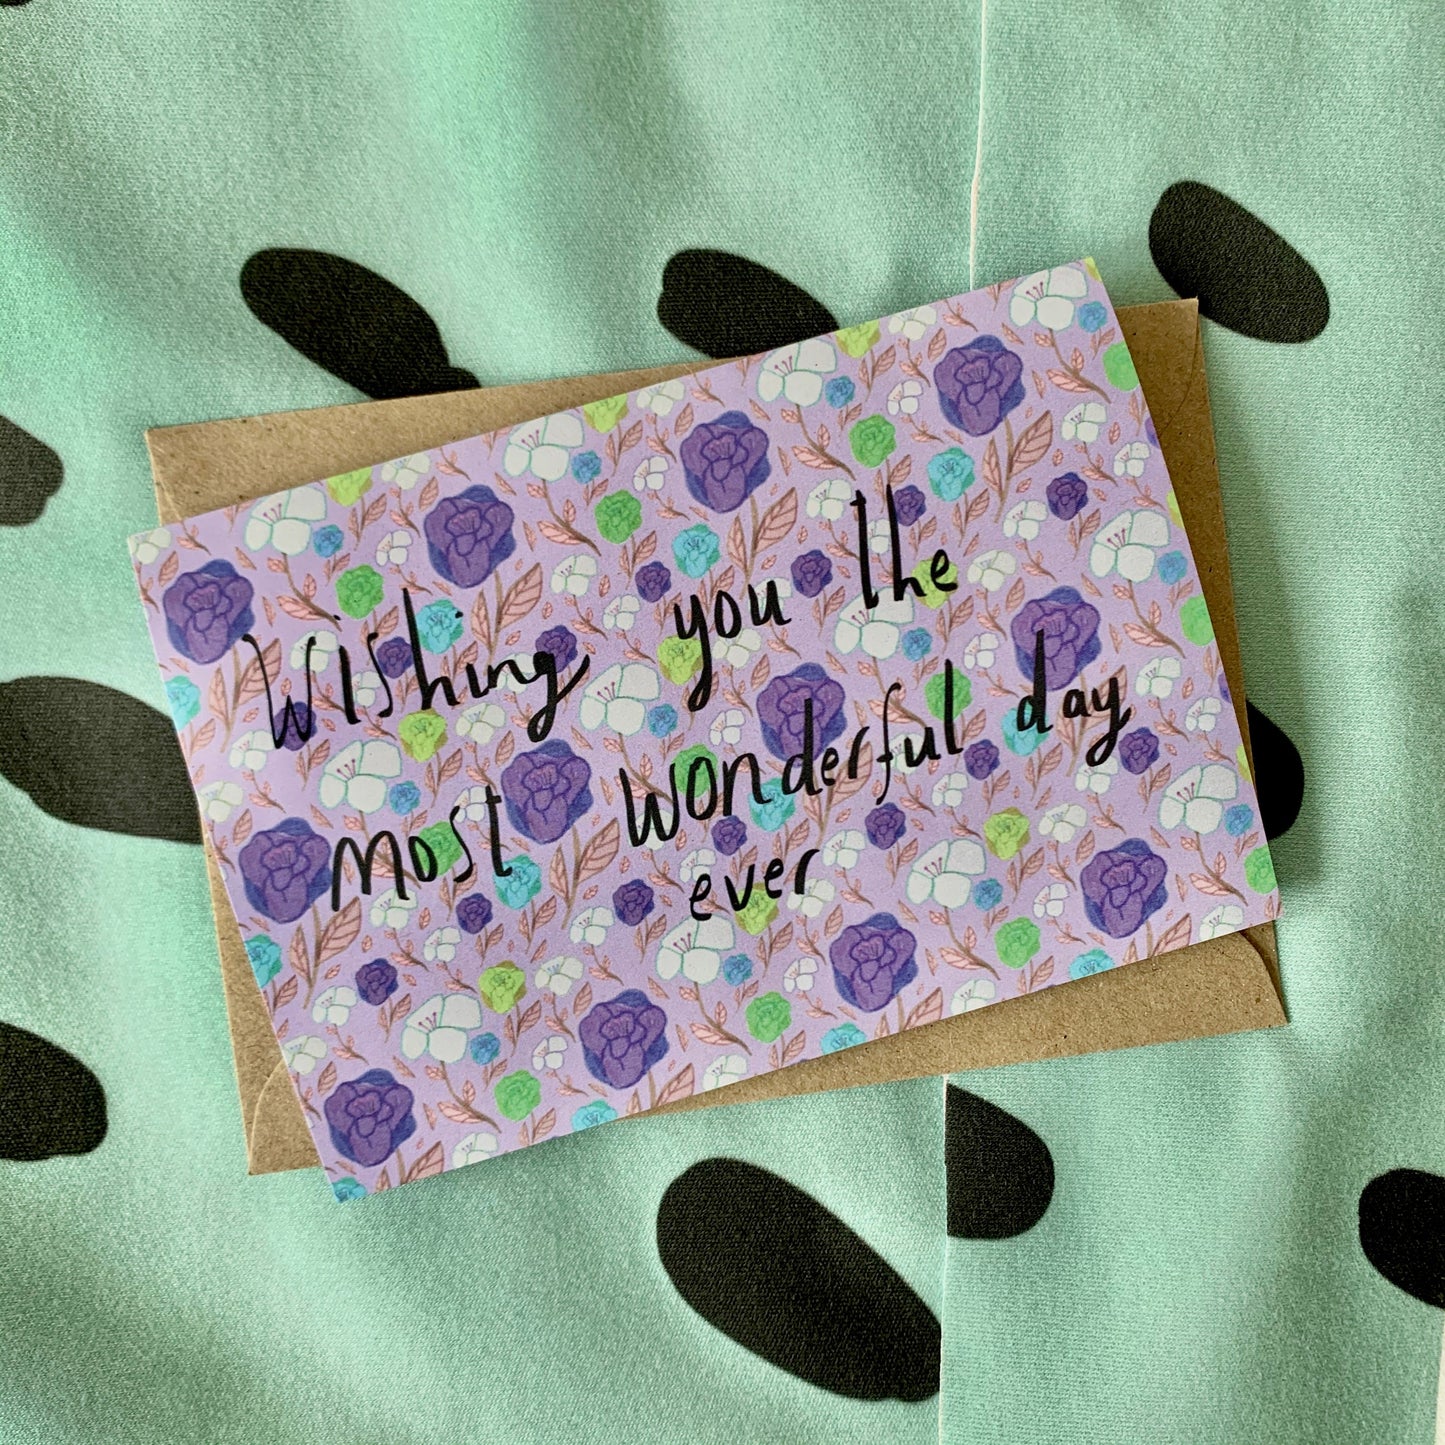 Wishing you the
most wonderful day
ever